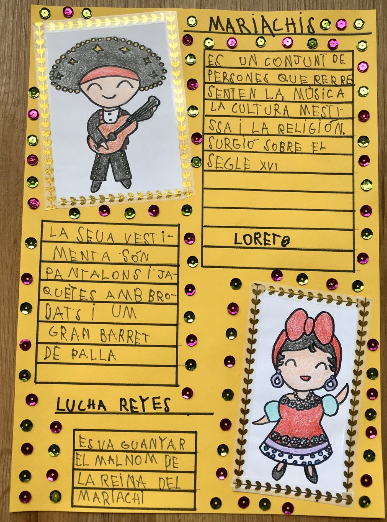 MARIACHIS
ES UN CONJUNT DE
PERSONES QUE REPRE
SENTEN LA MÚSICA
LA CULTURA MESTI
SSA I LA RELIGIÓN.
SURGIÓ SOBRE EL
SEGLE XVI
LORETO
LA SEUA VESTI-
MENTA SÓN
PANTALONS I JA-
QUETES AMB BRO-
DATS I UM
GRAN BARRET
DE PALLA
LUCHA REYES
ES VA GUANYAR
EL MALNOM DE
LA REINA DEL
MARIACHI